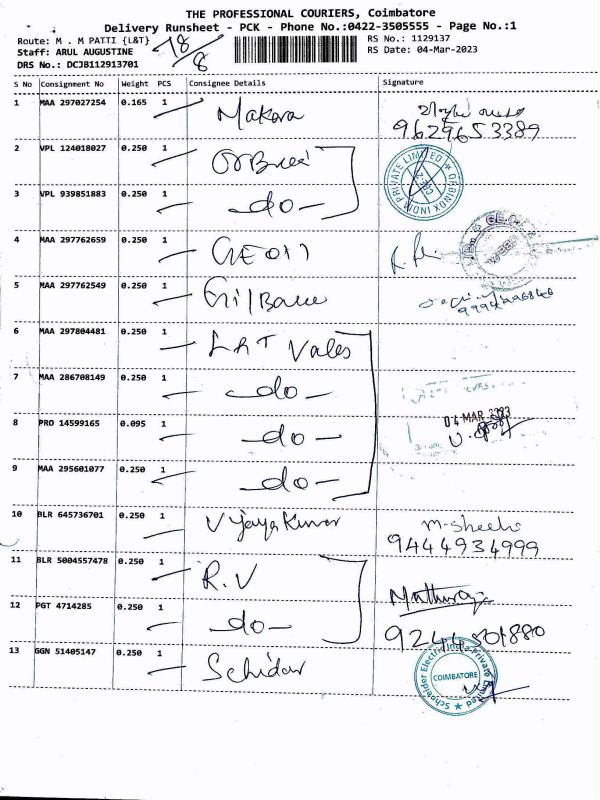 THE PROFESSIONAL COURIERS, Coimbatore
Delivery Runsheet - PCK - Phone No.:0422-3505555 - Page No.:1
Route: M . M PATTI {L&T}
RS No.: 1129137
Staff: ARUL AUGUSTINE
18/8
RS Date: 04-Mar-2023
DRS No.: DCJB112913701
S No Consignment No Weight PCS Consignee Details Signature
1 MAA 297027254 0.165 1 Makara
9629653389
2 VPL 124018027 0.250 1
3 VPL 939851883 0.250 1 -do-
PRIVATE LIMITED
4 MAA 297762659 0.250 1
5 MAA 297762549 0.250 1
6 MAA 297804481 0.250 1 L&T Vales
7 MAA 286708149 0.250 1 -do-
8 PRO 14599165 0.095 1 -do-
04 MAR 2023
9 MAA 295601077 0.250 1 -do-
10 BLR 645736701 0.250 1 Vijaya Kumar
9444934999
11 BLR 5004557478 0.250 1 R.V
12 PGT 4714285 0.250 1 -do-
9244501880
13 GGN 51405147 0.250 1
COIMBATORE